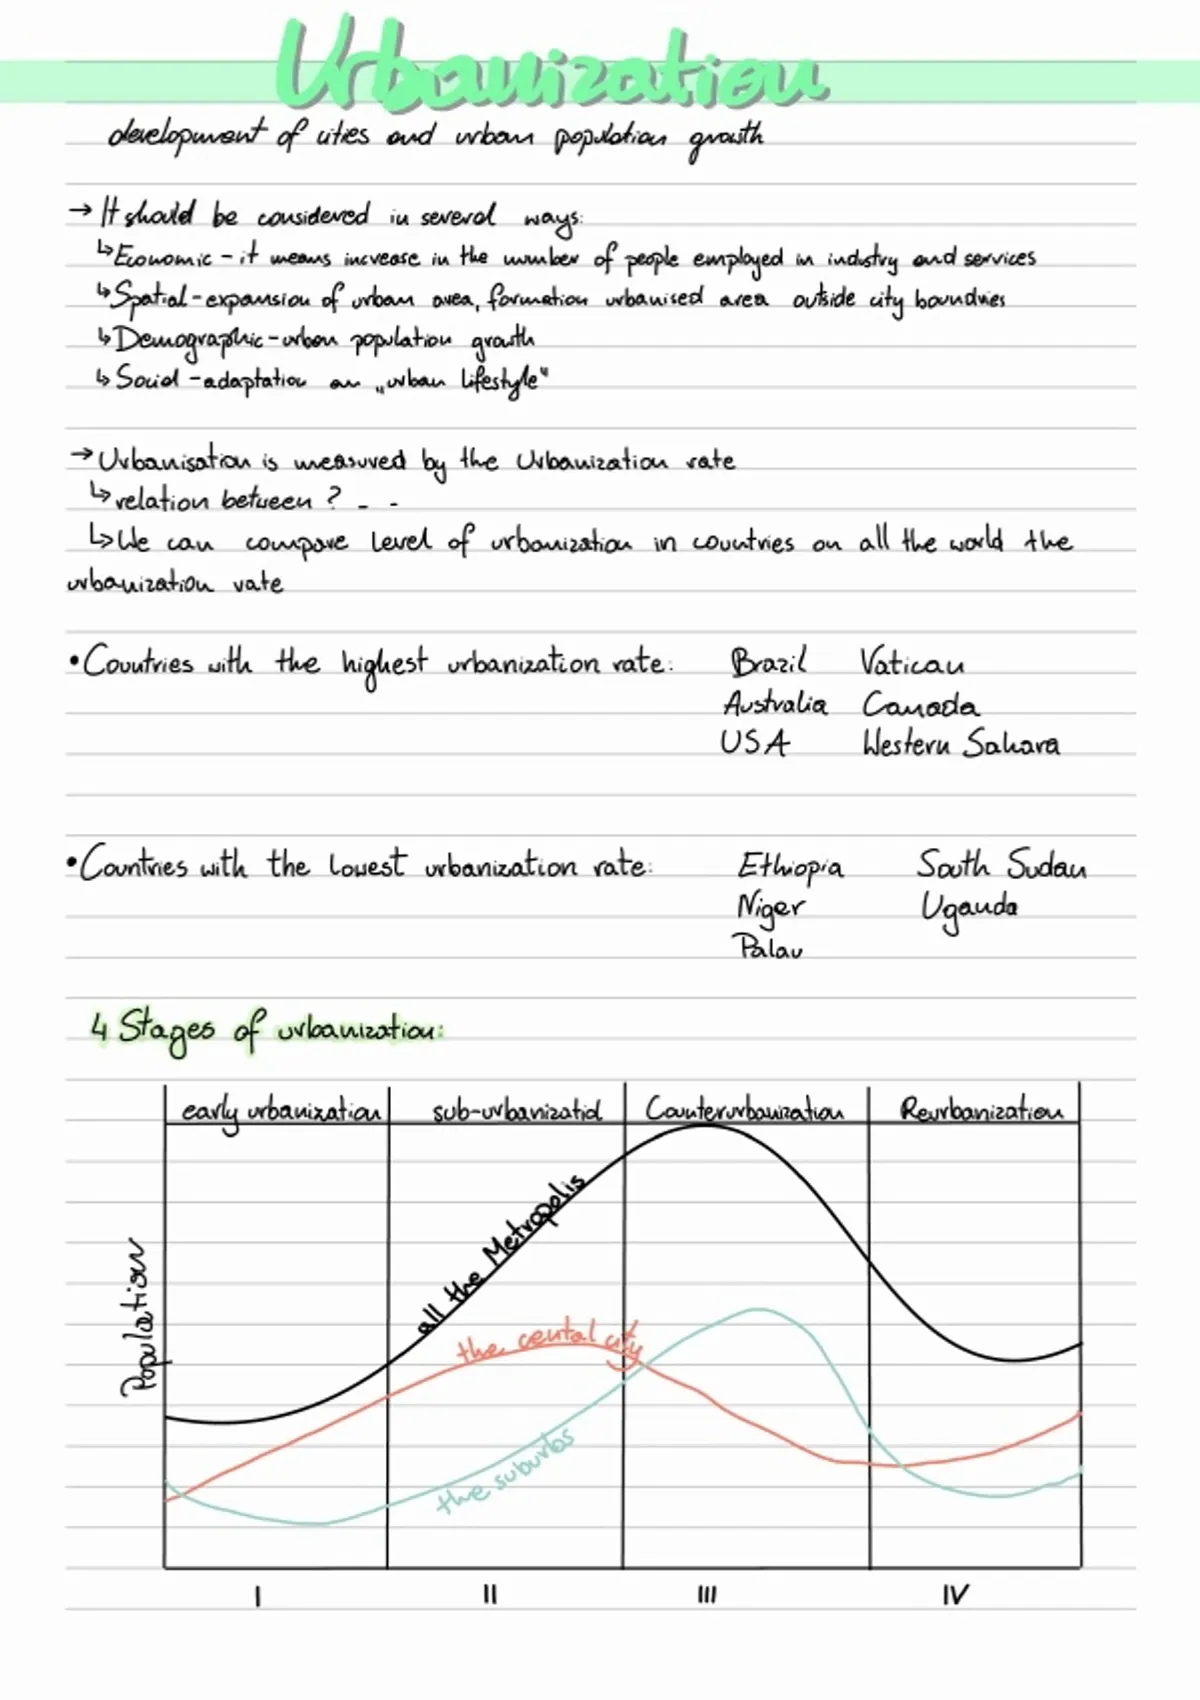 Urbanization
development of cities and urban population growth
→ It should be considered in several ways:
↳ Economic - it means increase in the number of people employed in industry and services
↳ Spatial - expansion of urban area, formation urbanised area outside city boundries
↳ Demographic - urban population growth
↳ Social - adaptation an „urban lifestyle"
→ Urbanisation is measured by the Urbanization rate
↳ relation between ? - -
↳ We can compare level of urbanization in countries on all the world the
urbanization rate
• Countries with the highest urbanization rate: Brazil Vatican
Australia Canada
USA Western Sahara
• Countries with the lowest urbanization rate: Ethiopia South Sudan
Niger Uganda
Palau
4 Stages of urbanization:
early urbanization sub-urbanizatid Counterurbanization Reurbanization
all the Metropolis
Population
the cental city
the suburbs
I II III IV